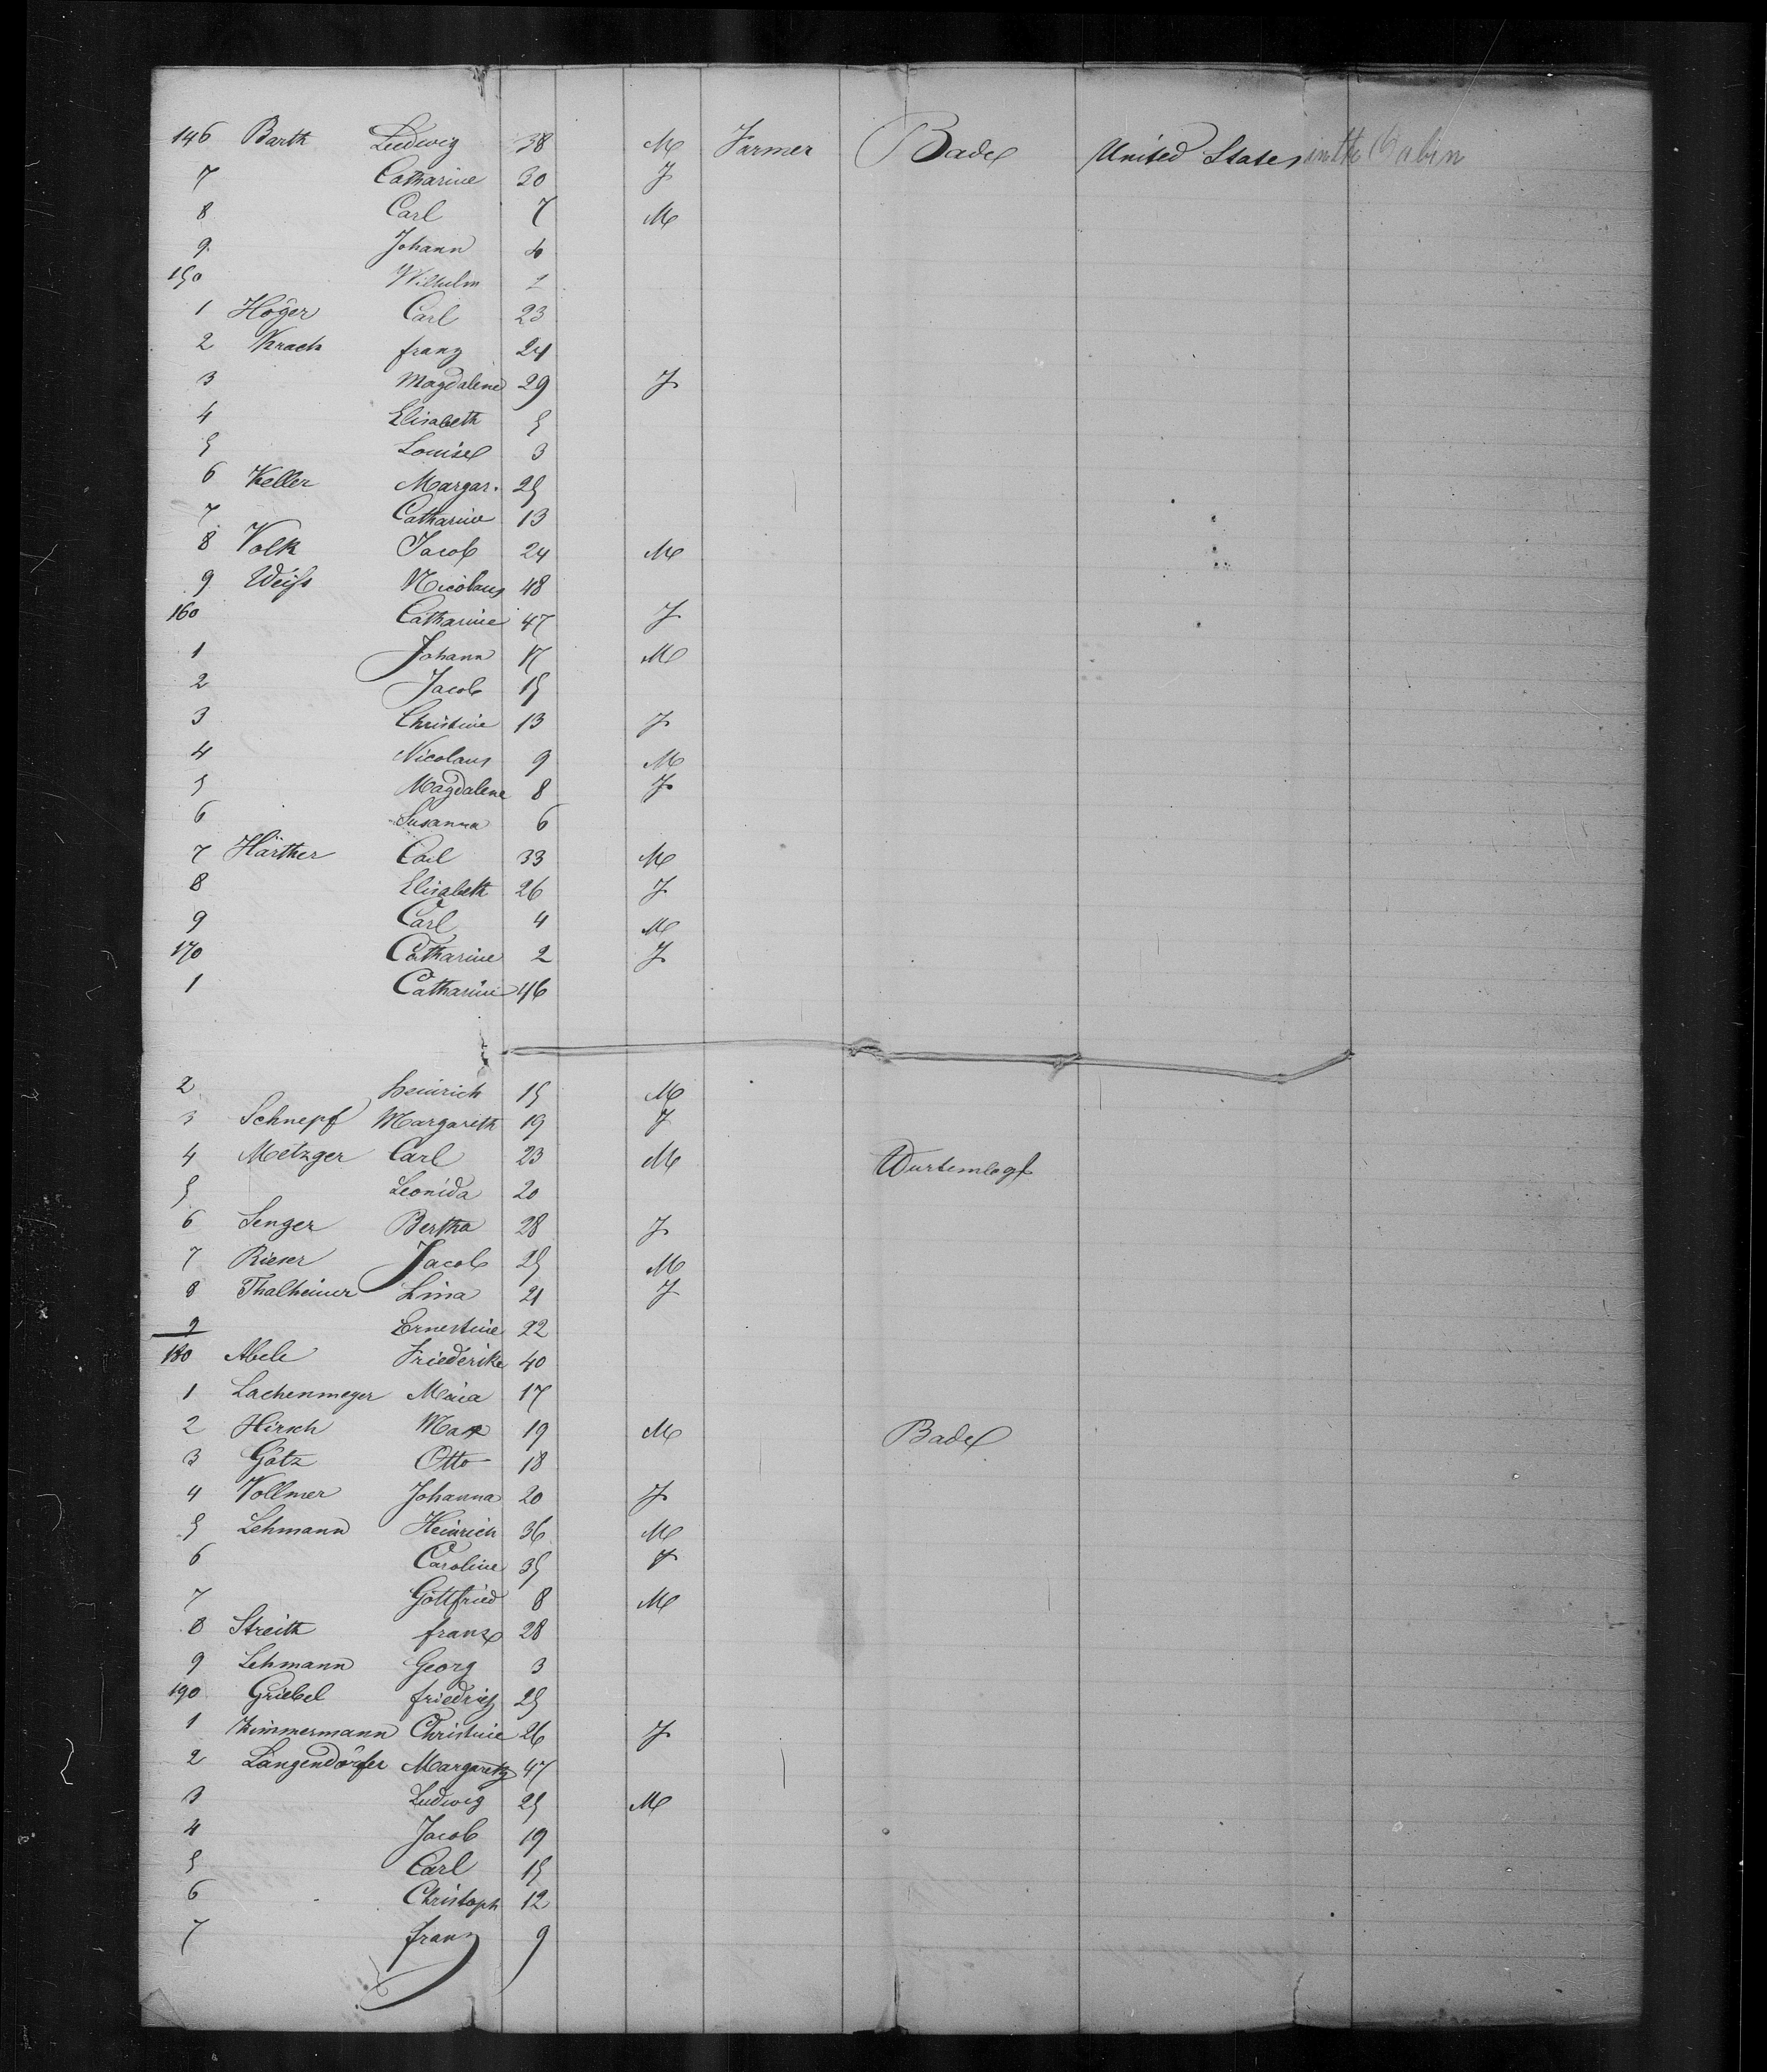 146 Barth Ludwig 38 M Farmer Baden United States in the Cabin
7 Catharine 30 F
8 Carl 7 M
9 Johann 4
150 Wilhelm
1 Höger Carl 23
2 Krach franz 24
3 Magdalene 29 F
4 Elisabeth 5
5 Louise 3
6 Keller Margar. 25
7 Catharine 13
8 Volk Jacob 24 M
9 Weiss Nicolaus 48
160 Catharine 47 F
1 Johann 17 M
2 Jacob 15
3 Christine 13 F
4 Nicolaus 9 M
5 Magdalene 8 F
6 Susanna 6
7 Härther Carl 33 M
8 Elisabeth 26 F
9 Carl 4 M
170 Catharine 2 F
1 Catharine 46
2 heinrich 15 M
3 Schnepf Margareth 19 F
4 Metzger Carl 23 M
5 Leonida 20
6 Senger Bertha 28 F
7 Rieser Jacob 25 M
8 Thalheimer Lina 21 F
9 Ernestine 22
180 Abele Friederike 40
1 Lachenmeyer Maria 17
2 Hirsch Max 19 M Baden
3 Götz Otto 18
4 Vollmer Johanna 20 F
5 Lehmann Heinrich 36 M
6 Caroline 35 F
7 Gottfried 8 M
8 Streith franz 28
9 Lehmann Georg 3
190 Griebel friedrich 25
1 Zimmermann Christine 26 F
2 Langendörfer Margareth 47
3 Ludwig 25 M
4 Jacob 19
5 Carl 15
6 Christoph 12
7 franz 9